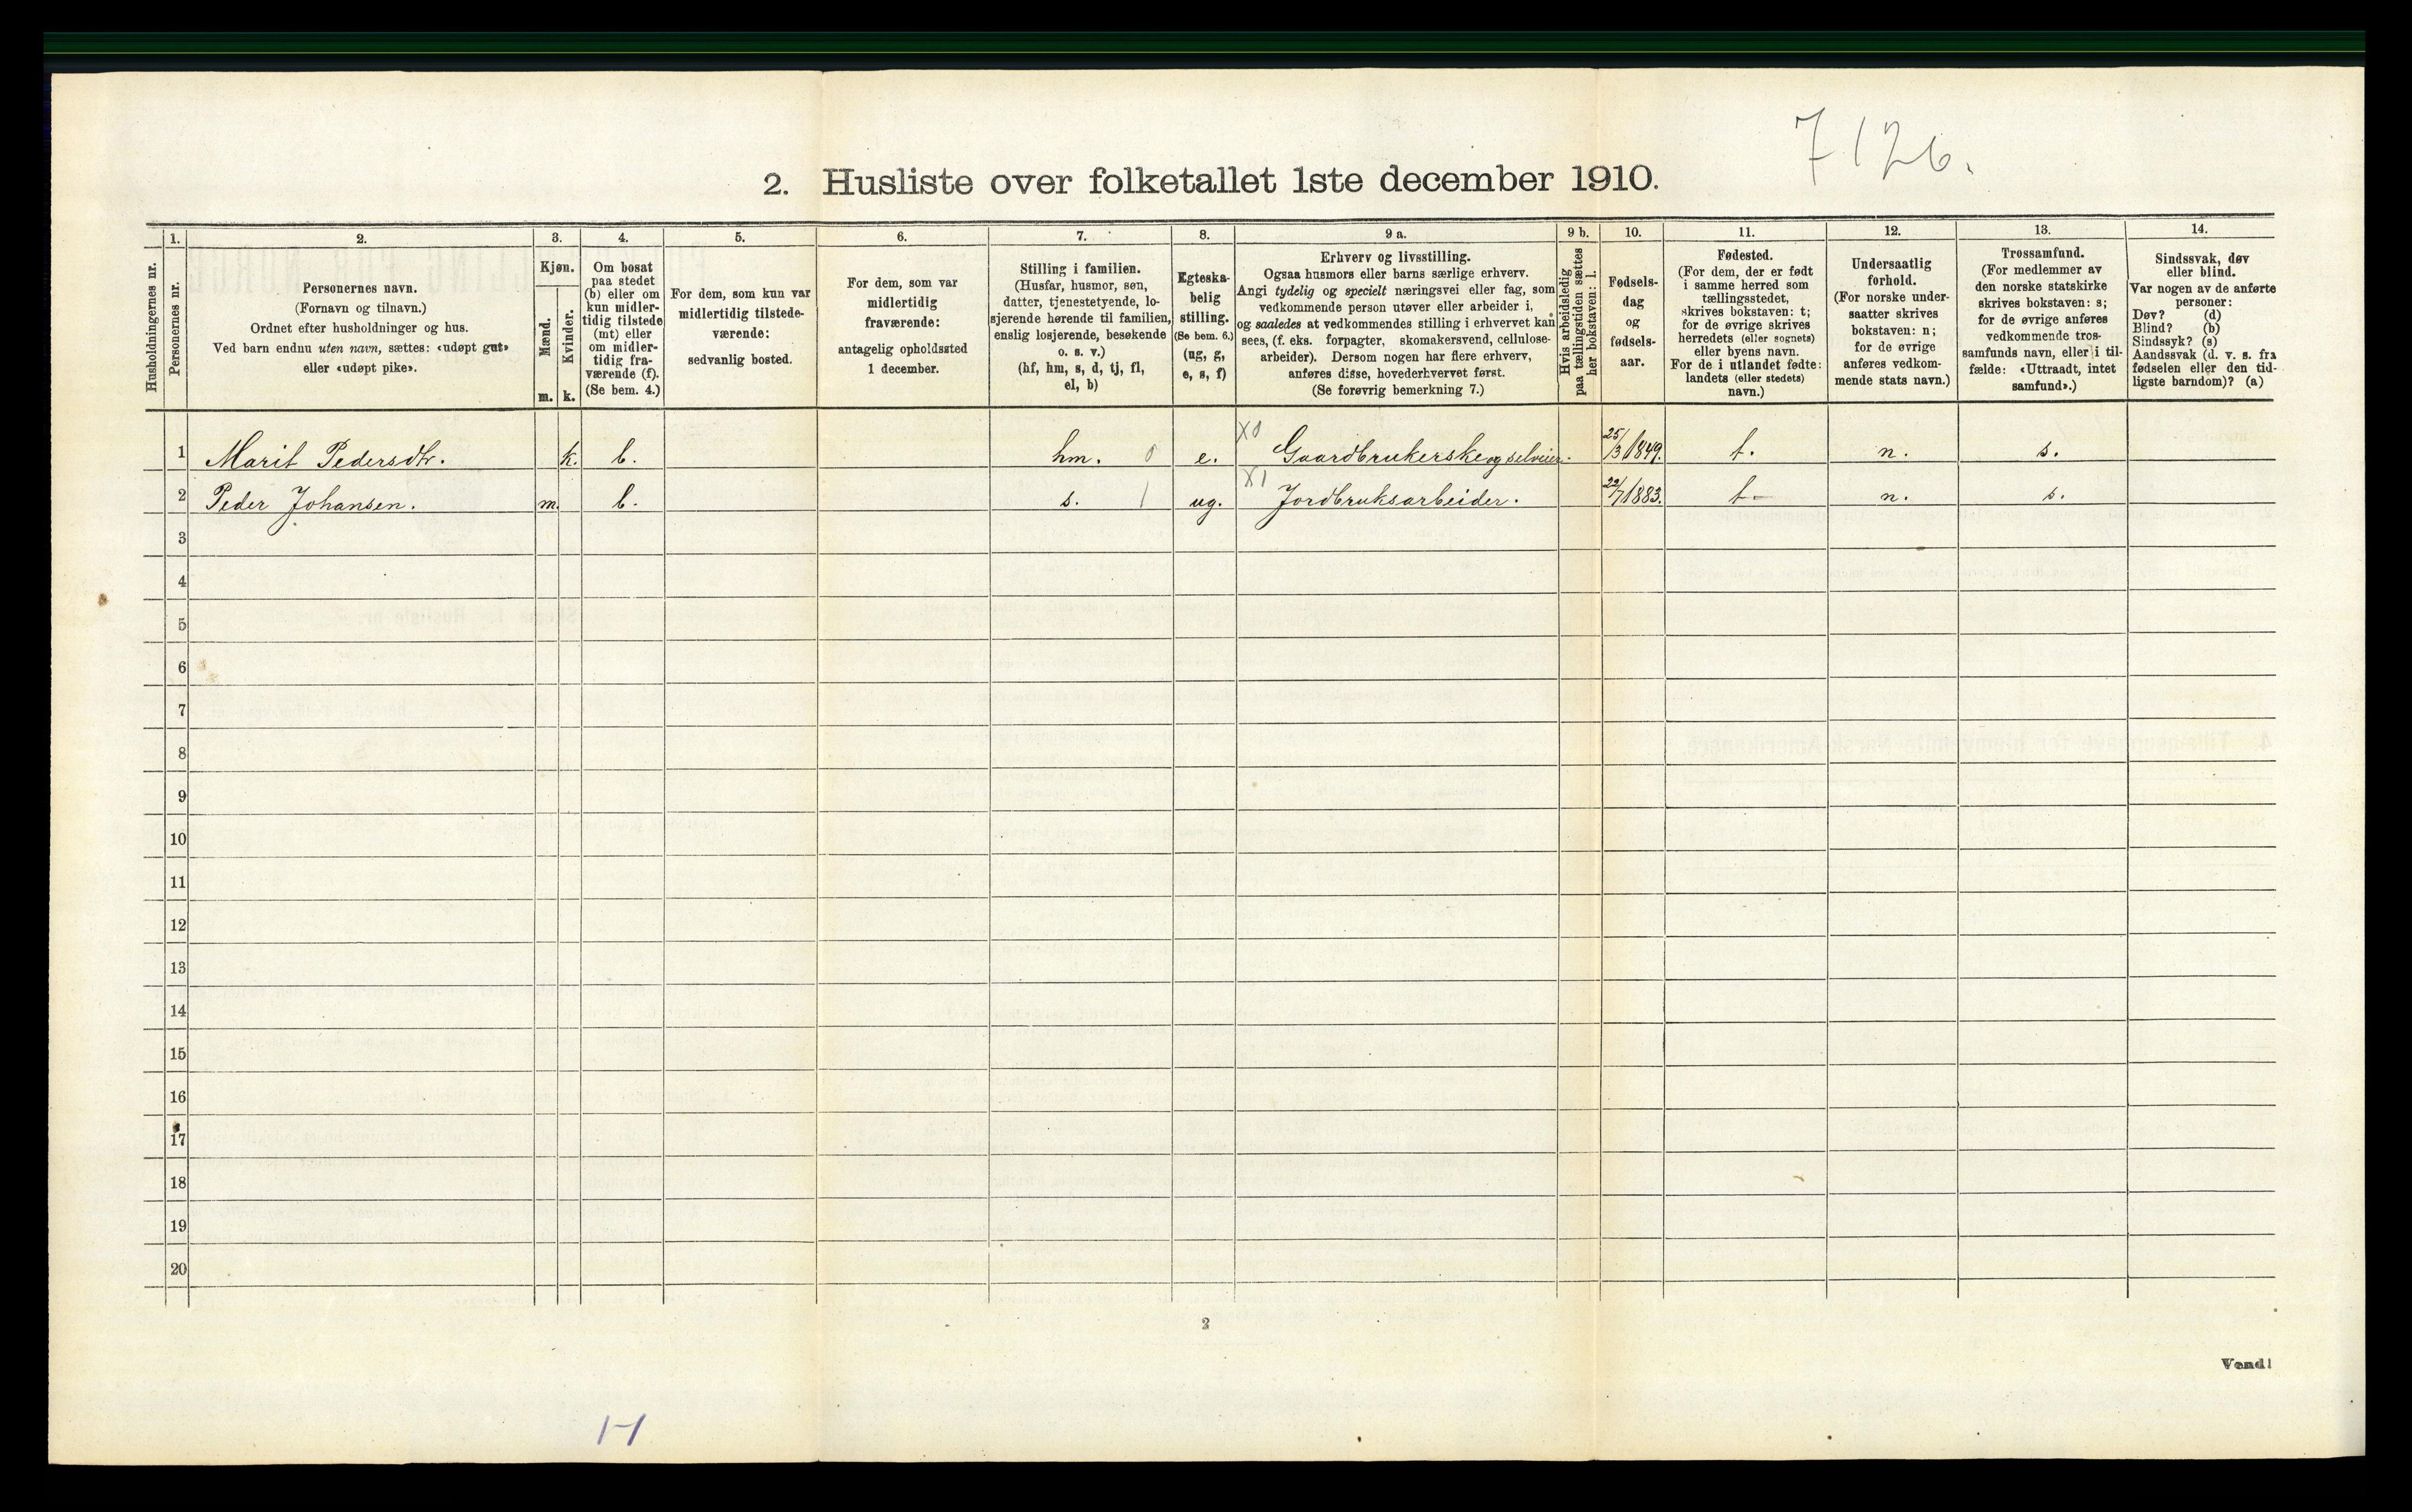 7126.
2. Husliste over folketallet 1ste december 1910.
Husholdningernes nr.
1.
Personernes nr.
2.
Personernes navn.
(Fornavn og tilnavn.)
Ordnet efter husholdninger og hus.
Ved barn endnu uten navn, sættes: «udøpt gut»
eller «udøpt pike».
3.
Kjøn.
Mænd.
Kvinder.
m. k.
4.
Om bosat
paa stedet
(b) eller om
kun midler-
tidig tilstede
(mt) eller
om midler-
tidig fra-
værende (f).
(Se bem. 4.)
5.
For dem, som kun var
midlertidig tilstede-
værende:
sedvanlig bosted.
6.
For dem, som var
midlertidig
fraværende:
antagelig opholdssted
1 december.
7.
Stilling i familien.
(Husfar, husmor, søn,
datter, tjenestetyende, lo-
sjerende hørende til familien,
enslig losjerende, besøkende
o. s. v.)
(hf, hm, s, d, tj, fl,
el, b)
8.
Egteska-
belig
stilling.
(Se bem. 6.)
(ug, g,
e, s, f)
9 a.
Erhverv og livsstilling.
Ogsaa husmors eller barns særlige erhverv.
Angi tydelig og specielt næringsvei eller fag, som
vedkommende person utøver eller arbeider i,
og saaledes at vedkommendes stilling i erhvervet kan
sees, (f. eks. forpagter, skomakersvend, cellulose-
arbeider). Dersom nogen har flere erhverv,
anføres disse, hovederhvervet først.
(Se forøvrig bemerkning 7.)
9 b.
Hvis arbeidsledig
paa tællingstiden sættes
her bokstaven: l.
10.
Fødsels-
dag
og
fødsels-
aar.
11.
Fødested.
(For dem, der er født
i samme herred som
tællingsstedet,
skrives bokstaven: t;
for de øvrige skrives
herredets (eller sognets)
eller byens navn.
For de i utlandet fødte:
landets (eller stedets)
navn.)
12.
Undersaatlig
forhold.
(For norske under-
saatter skrives
bokstaven: n;
for de øvrige
anføres vedkom-
mende stats navn.)
13.
Trossamfund.
(For medlemmer av
den norske statskirke
skrives bokstaven: s;
for de øvrige anføres
vedkommende tros-
samfunds navn, eller i til-
fælde: «Uttraadt, intet
samfund».)
14.
Sindssvak, døv
eller blind.
Var nogen av de anførte
personer:
Døv? (d)
Blind? (b)
Sindssyk? (s)
Aandssvak (d. v. s. fra
fødselen eller den tid-
ligste barndom)? (a)
1 Marit Pedersdtr. k. b. hm. 0 e. X0 Gaardbrukerske og selveier. 25/3 1849. t. n. s.
2 Peder Johansen. m. b. s. 1 ug. X1 Jordbruksarbeider. 22/7 1883. t n. s.
3
4
5
6
7
8
9
10
11
12
13
14
15
16
17
18
19
20
2
Vend!